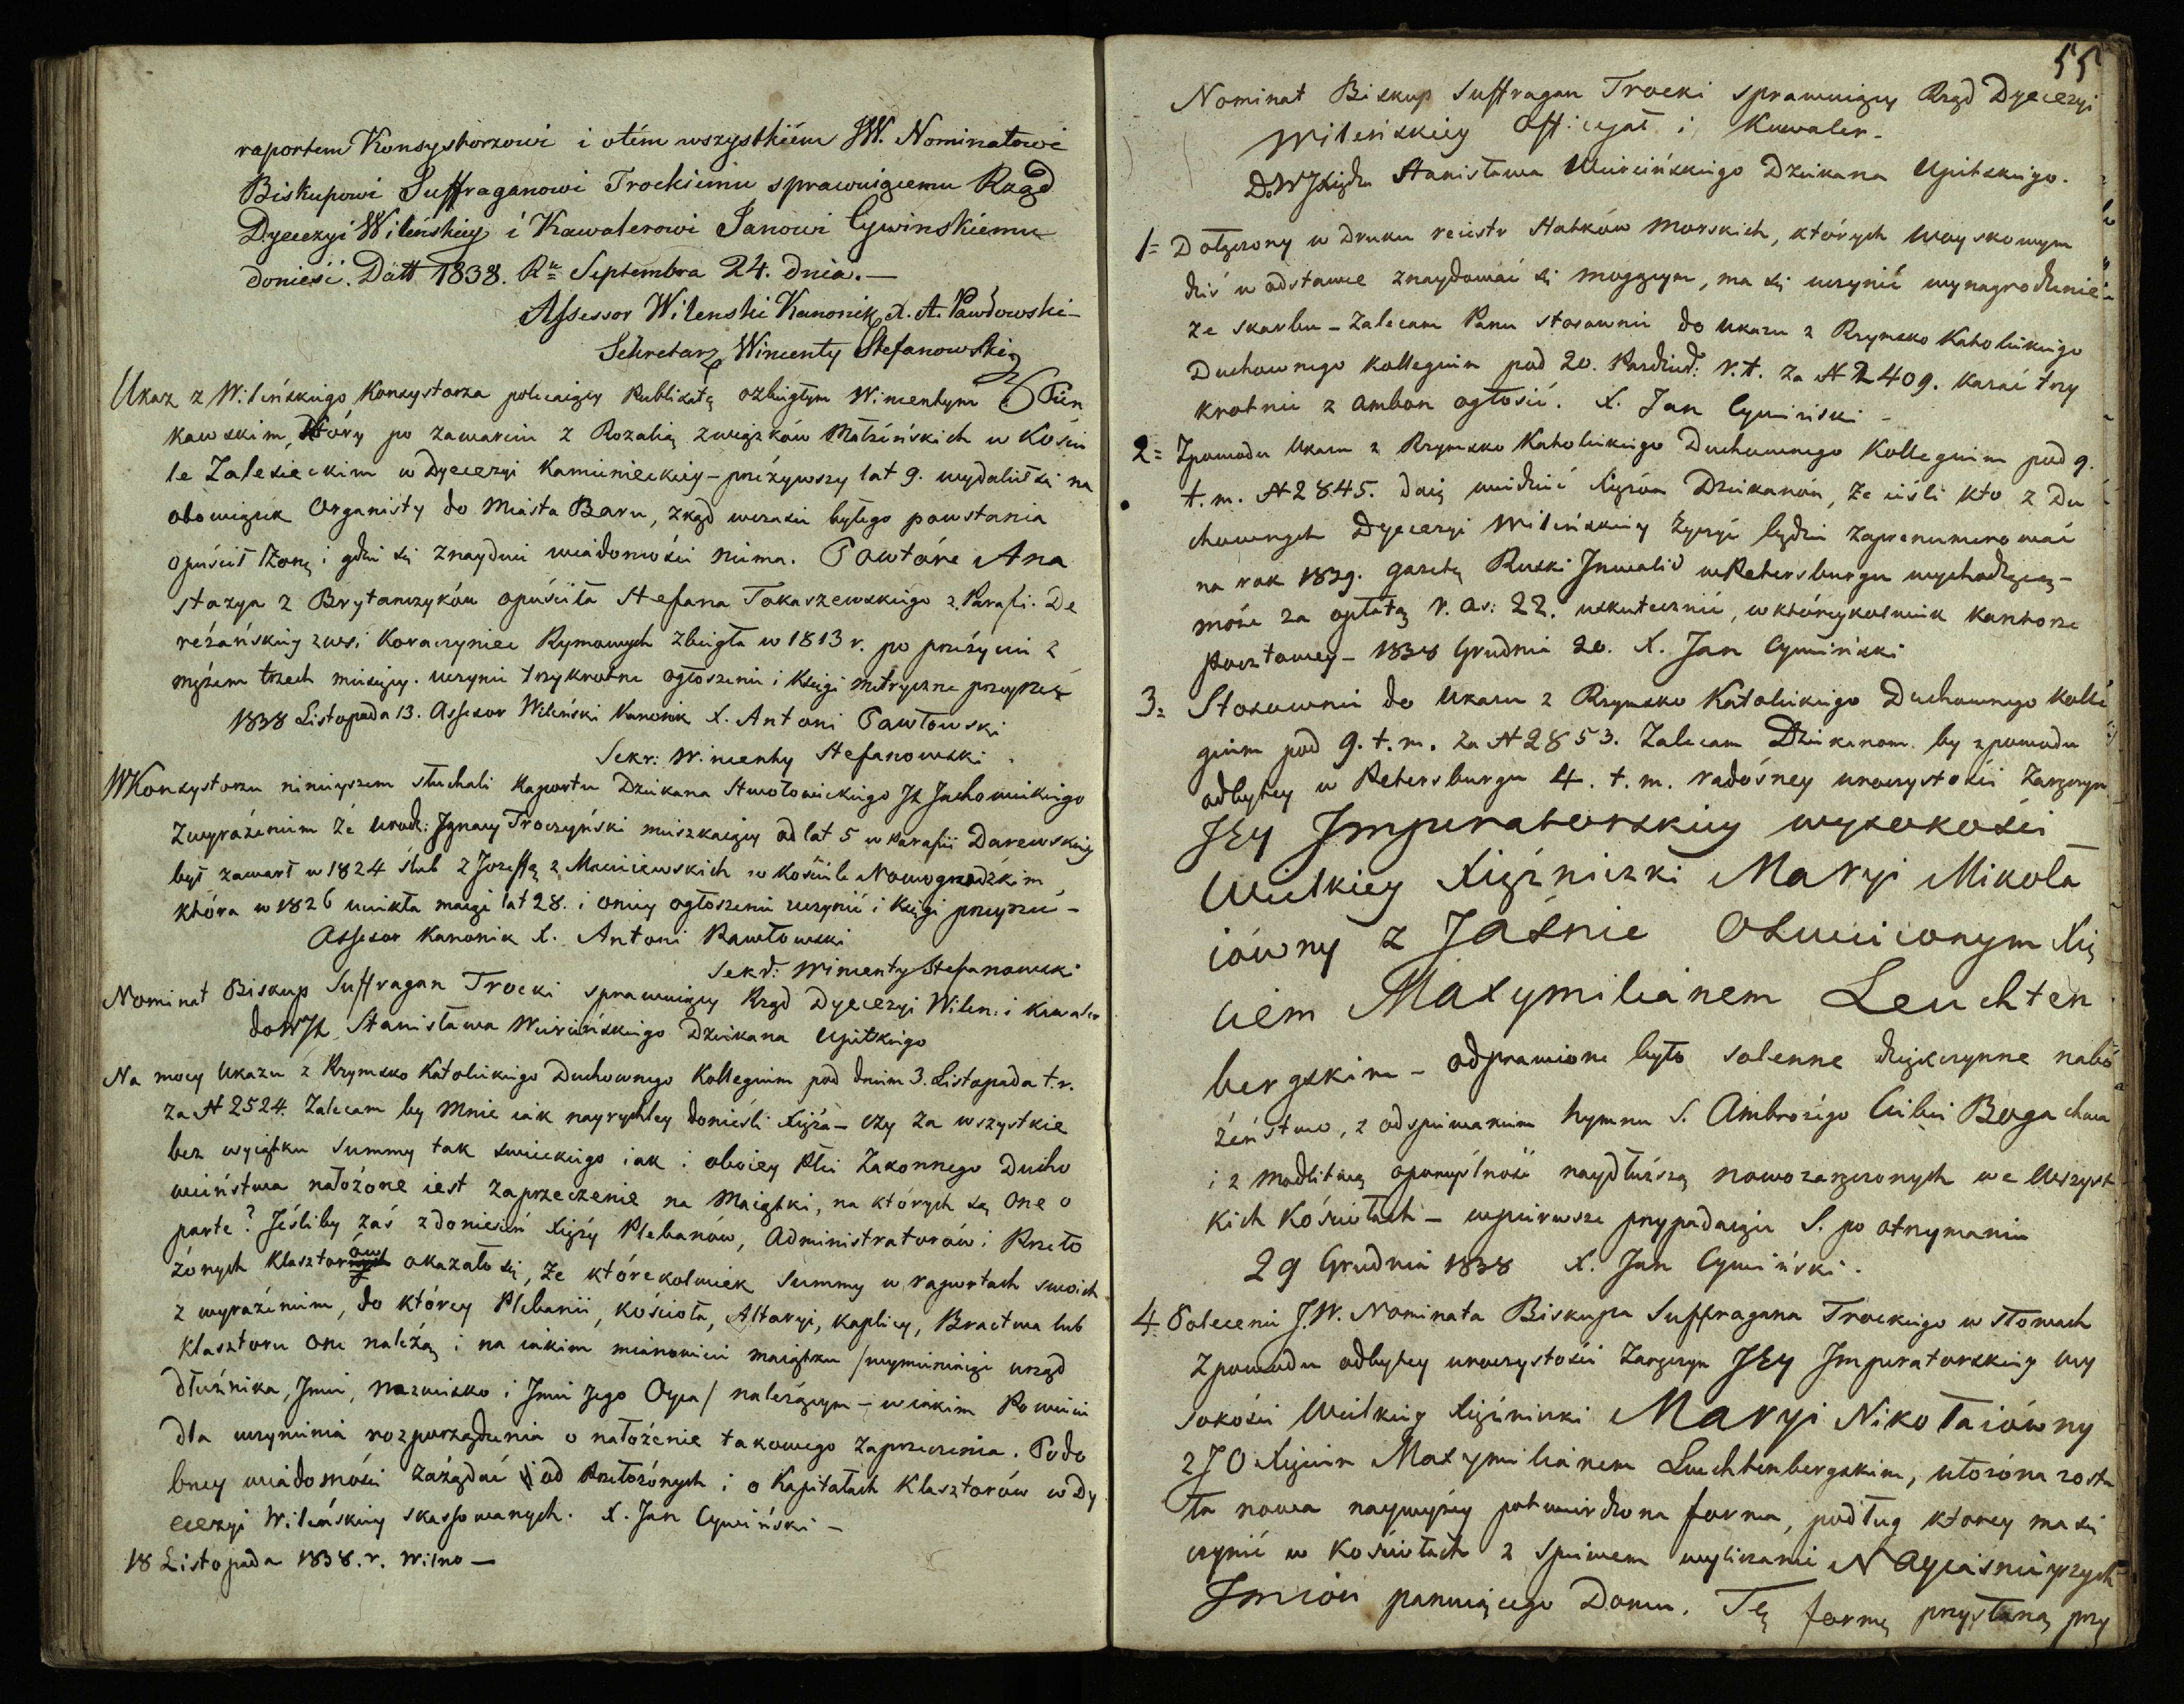 raportem Konsystorzowi i otém wszystkiém JW. Nominatowi
Biskupowi Suffraganowi Trockiemu sprawuiącemu Rząd
Dyecezyi Wileńskiey i Kawalerowi Janowi Cywinskiemu
donieść. Datt 1838. Ru Septembra 24. dnia.—
Assessor Wilenski Kanonik X. A. Pawłowski—
Sekretarz Wincenty Stefanowski
Ukaz z Wileńskiego Konsystorza polecaiący Publikatę ozbiegłym Wincentym
kawskim, który po zawarciu z Rozalią związków Małżeńskich w Kościele
le Zalesieckim w Dyecezyi Kamienieckiey – przeżywszy lat 9. wydalił się na
obowiązek Organisty do Miasta Baru, zkąd wczasie byłego powstania
opuścił Żonę i gdzie się znayduie wiadomości niema. Powtóre Ana
stazya z Brytanczyków opuściła Stefana Tokaszewskiego z Parafi. De
reżańskiey zwsi Koraczyniec Rymowych zbiegła w 1813 r. po przeżyciu z
mężem trzech miesięcy. uczynić trzykrotne ogłoszenie i Księgi metryczne przeyrzéć
1838 Listopada 13. Assesor Wileński Kanonik X. Antoni Pawłowski
Sekr: Wincenty Stefanowski.
WKonsystorzu ninieyszem słuchali Raportu Dziekana Stwołowickiego JX Juchowickiego
Zwyrażeniem że urodz: Ignacy Troczyński mieszkaiący od lat 5 w Parafii Darewskiey
był zawarł w 1824 ślub z Jozeffą z Macieiewskich w Kościele Nowogrodzkim,
która w 1826 uciekła maiąc lat 28. i oniey ogłoszenie uczynić i Księgi przeyrzéć –
Assesor Kanonik X. Antoni Pawłowski
Sekr: Wincenty Stefanowski
Nominat Biskup Suffragan Trocki sprawuiący Rząd Dyecezyi Wilen. i Kawaler
doWJX Stanisława Weicińskiego Dziekana Upitskiego
Na mocy Ukazu z Rzymsko Katolickiego Duchownego Kollegium pod dniem 3. Listopada t.r.
za N 2524. Zalecam by Mnie iak nayrychley donieśli Xięża – czy za wszystkie
bez wyiątku summy tak swieckiego iak i oboiey Płci Zakonnego Ducho
wieństwa nałożone iest zaprzeczenie na Maiątki, na których są one o
parte? Jeśliby zaś zdoniesień Xięży Plebanów, Administratorów i Przeło
żonych Klasztorów okazało się, że którekolwiek Summy w raportach swoich
z wyrażeniem, do którey Plebanii, kościoła, Altaryi, kaplicy, Bractwa lub
Klasztoru one należą i na iakim mianowicie maiątku /wymieniaiąc urząd
dłużnika, Jmie, nazwisko i Jmie jego Oyca/ należącym – w iakim Powiecie
dla uczynienia rozporządzenia o nałożenie takowego zaprzeczenia. Podo
bney wiadomości zażądać i od Przełożonych i o Kapitałach Klasztorów w Dy
ecezyi Wileńskiey skassowanych. X. Jan Cywiński –
18 Listopada 1838. r. Wilno –
55
Nominat Biskup Suffragan Trocki sprawuiący Rząd Dyecezyi
Wileńskiey Officyał i Kawaler.
DoWJXiędza Stanisława Weicińskiego Dziekana Upitskiego.
1= Dołączony w Druku reiestr Statków Morskich, których Woyskowym
dziś w odstawce znaydować się mogącym, ma się uczynić wynagrodzenie
ze skarbu – Zalecam Panu stosownie do Ukazu z Rzymsko Katolickiego
Duchownego Kollegium pod 20. Paźdz: r.t. za N 2409. kazać trzy
krotnie z ambon ogłosić. X. Jan Cywiński –
2= Zpowodu Ukazu z Rzymsko Katolickiego Duchownego Kollegium pod 9.
t.m. N 2845. daię wiedzieć Xiężom Dziekanóm, że ieśli kto z Du
chownych Dyecezyi Wileńskiey życzyć będzie zaprenumerować
na rok 1839. gazetę Ruski Inwalid w Petersburgu wychodzącą –
może za opłatą r. as: 22. uskutecznić, w któreykolwiek Kantorze
Pocztowey – 1838 Grudnia 20. X. Jan Cywiński
3= Stosownie do Ukazu z Rzymsko Katolickiego Duchownego Kolle
gium pod 9. t.m. za N 2853. Zalecam Dziekanom by zpowodu
odbytey w Petersburgu 4. t.m. radośney uroczystości Zaręczyn
JEy Imperatorskiey wysokości
Wielkiey Xiężniczki Maryi Mikoła
iówny z Jaśnie Oświeconym Xię
ciem Maxymilianem Leuchten
bergskim – odprawione było solenne dziękczynne nabo
żeństwo, z odśpiewaniem hymnu S. Ambrożego Ciebie Boga chwa
i z modlitwą opomyślność naydłuższą nowozaręczonych we wszyst
kich Kościołach – wpierwsze przypadaiące S. po otrzymaniu
29 Grudnia 1838 X. Jan Cywiński.
4. Polecenie J.W. Nominata Biskupa Suffragana Trockiego w słowach
Zpowodu odbytey uroczystości Zaręczyn JEy Imperatorskiey wy
sokości Wielkiey Xiężniczki Maryi Nikołaiówny
z JO Xięciem Maxymilianem Leuchtenbergskim, ułożona zosta
ła nowa naywyżey potwierdzona forma, podług ktorey ma się
czynić w Kościołach z śpiewem wyliczanie Nayiaśnieyszych
Imion panuiącego Domu. Tę formę przysłaną przy